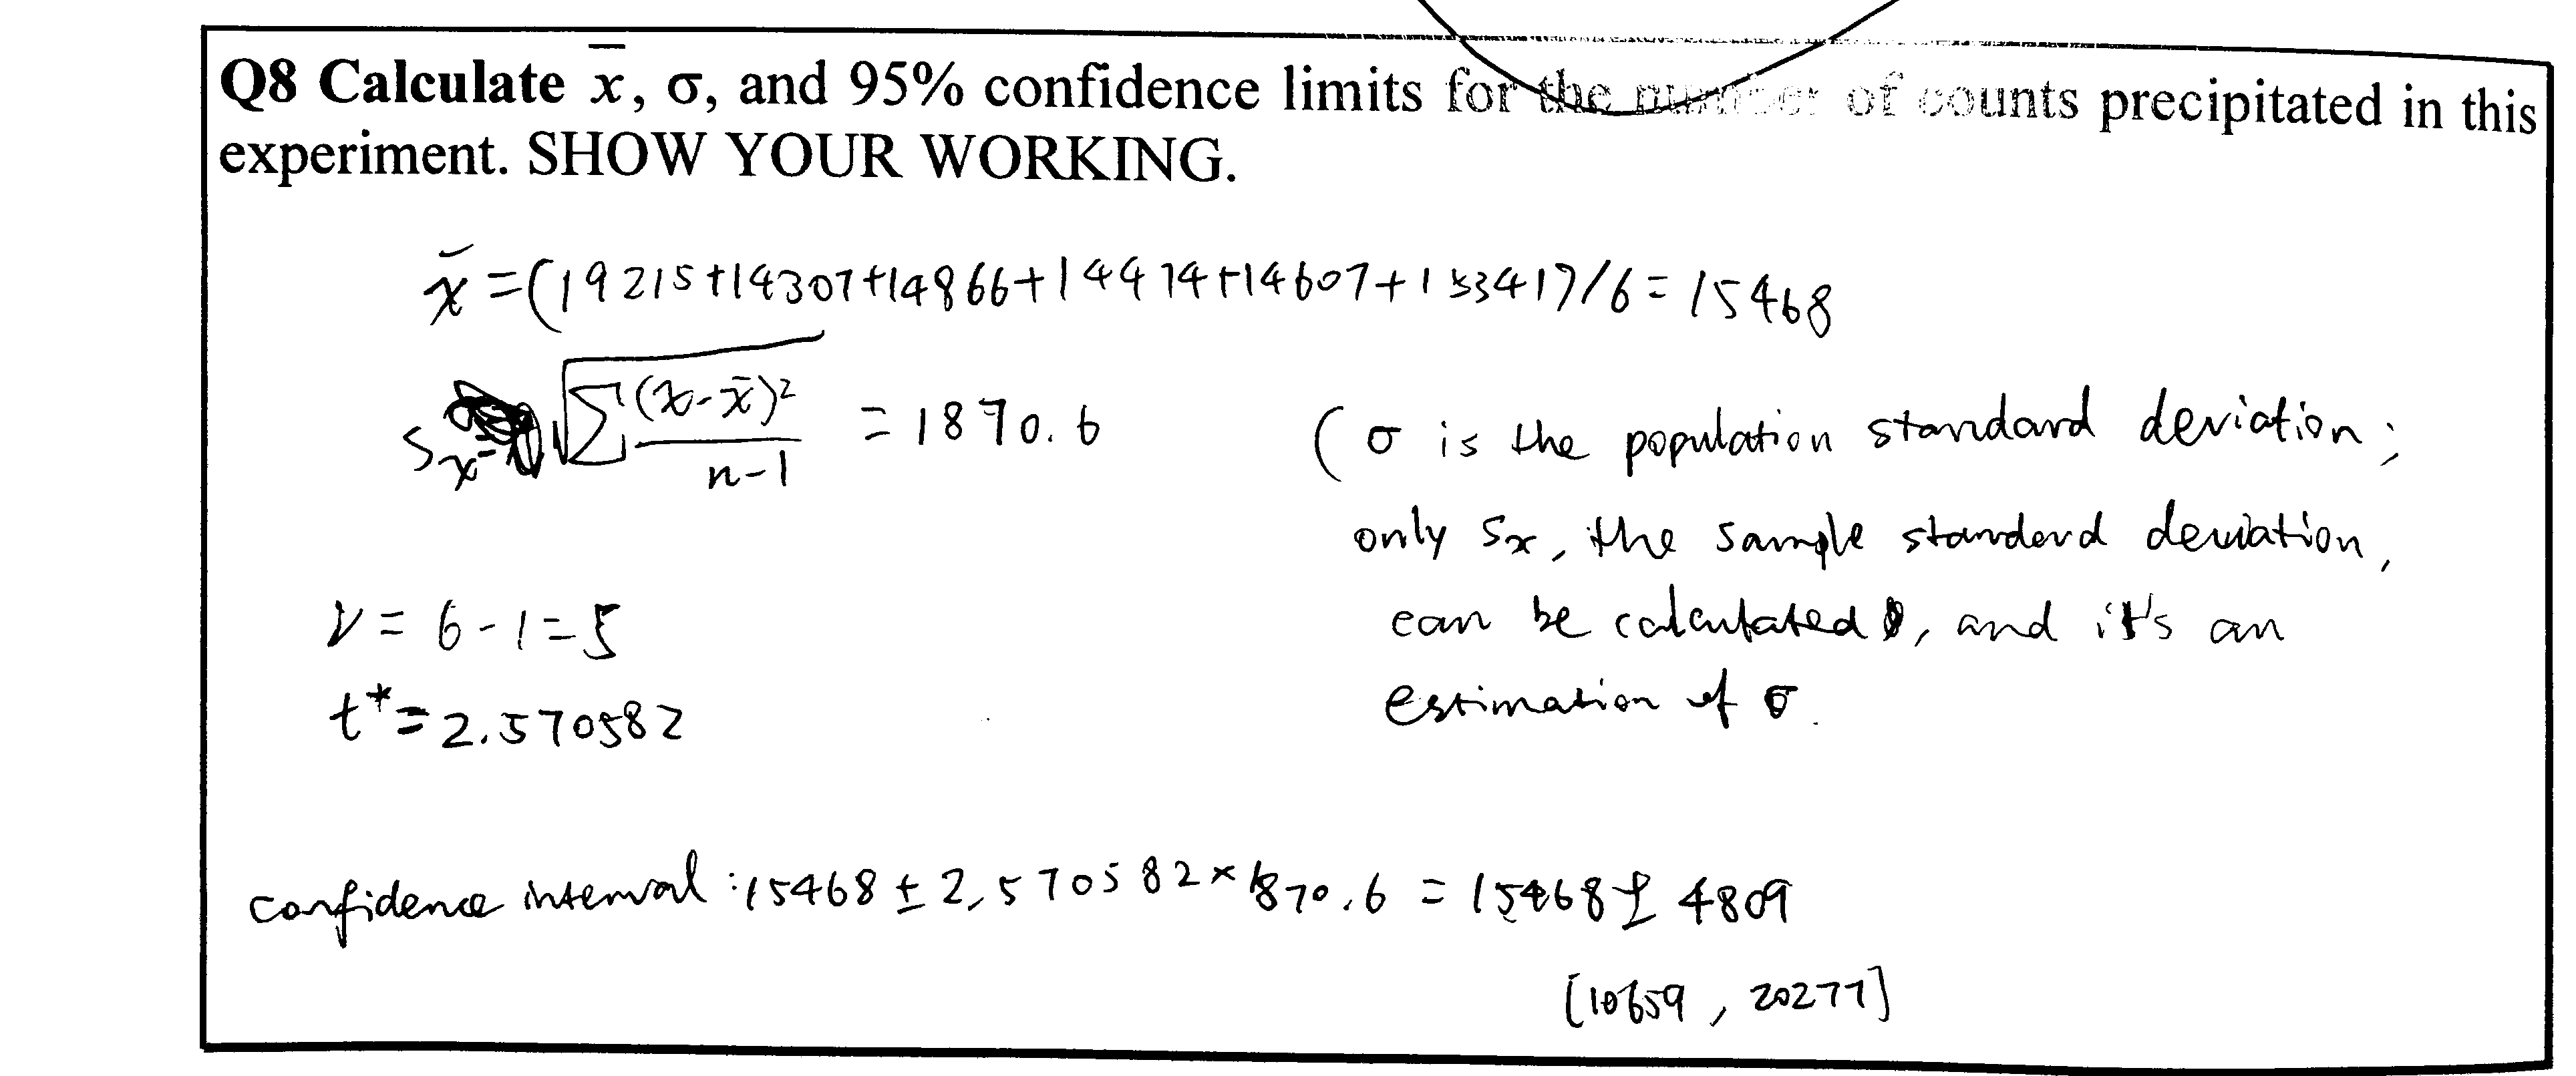 Q8 Calculate x̄, σ, and 95% confidence limits for the number of counts precipitated in this
experiment. SHOW YOUR WORKING.
x̄ = (19215+14307+14866+14474+14607+15341)/6 = 15468
Sx = √Σ(x-x̄)²/n-1 = 1870.6
(σ is the population standard deviation;
only Sx, the sample standard deviation,
can be calculated, and it's an
estimation of σ.
ν = 6-1=5
t*=2.570582
confidence interval: 15468 ± 2.570582×1870.6 = 15468 ± 4809
[10659, 20277]